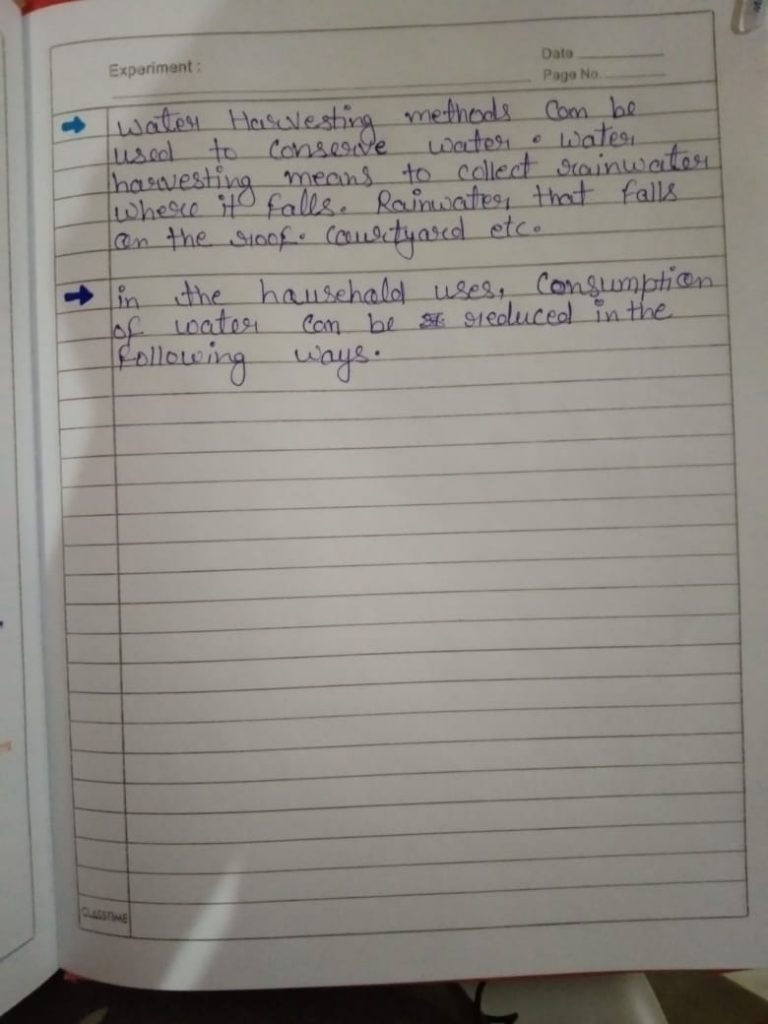 Experiment :
Date
Page No.
Water Harvesting methods can be
used to conserve water. water
harvesting means to collect rainwater
where it falls. Rainwater, that falls
on the roof. courtyard etc.
in the household uses, consumption
of water can be reduced in the
following ways.
CLASSTIME